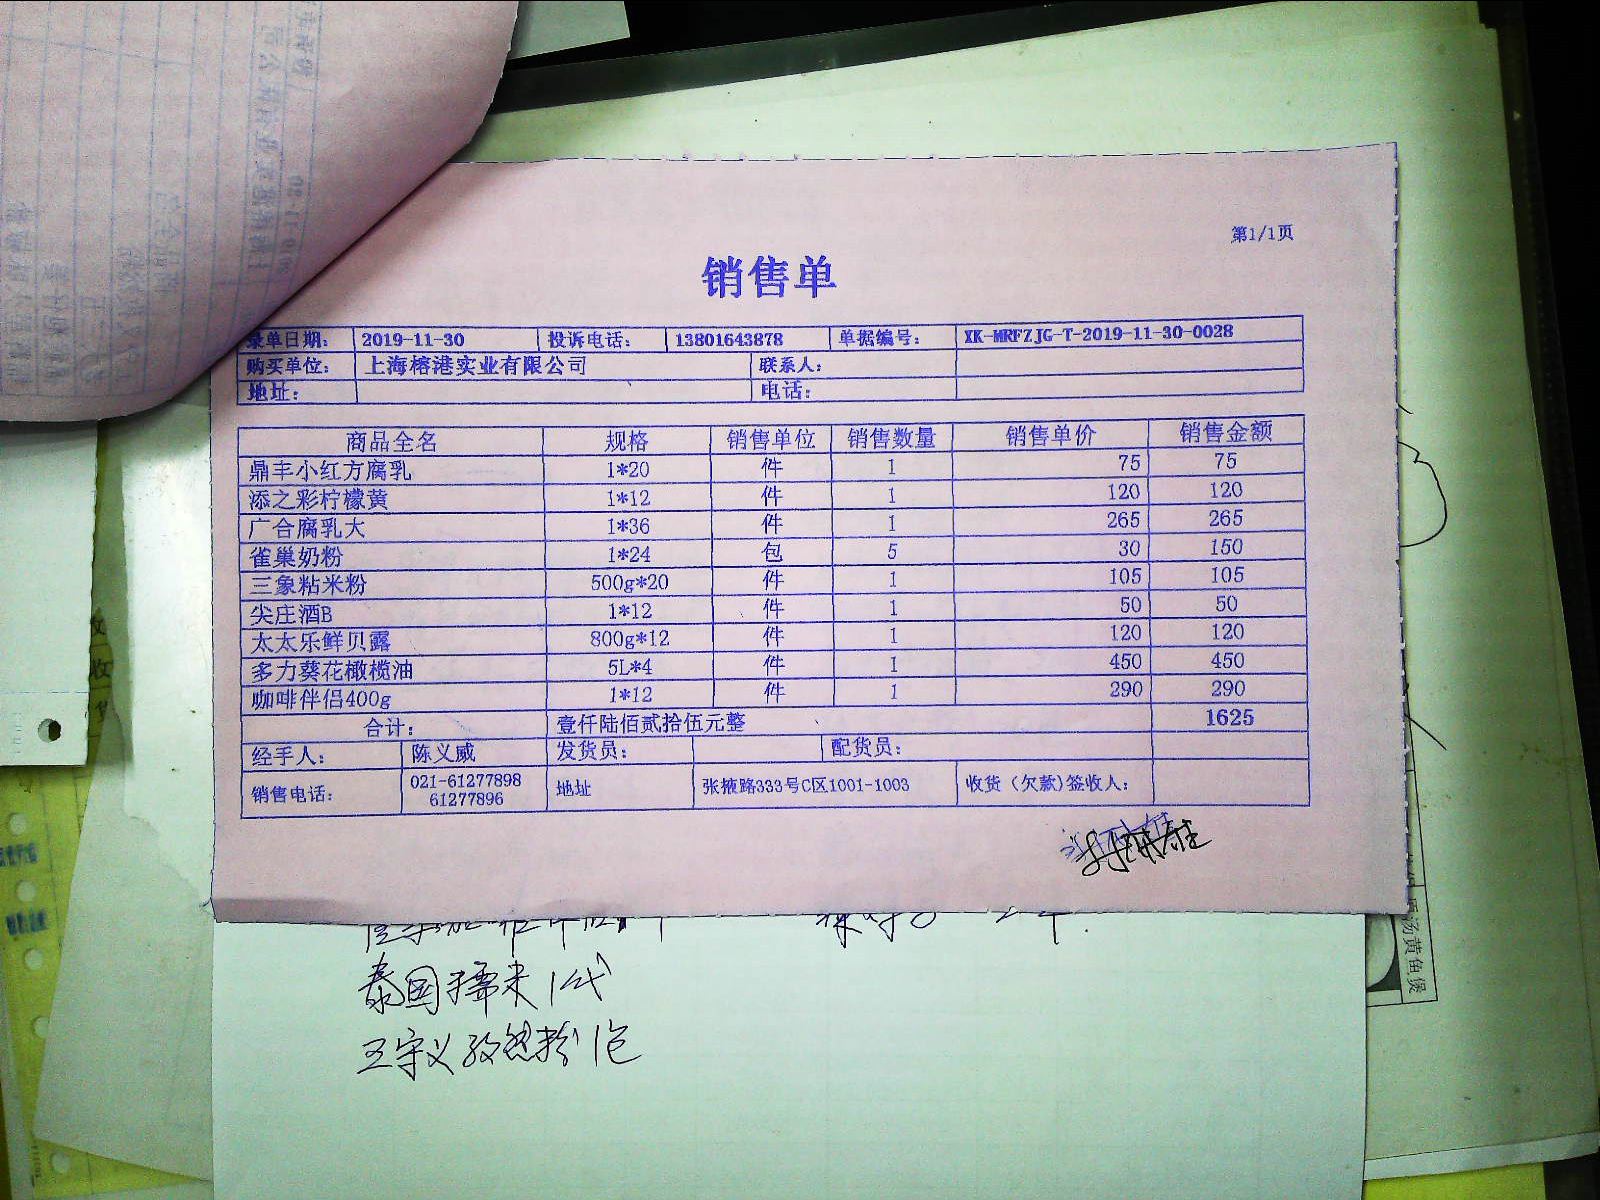 第1/1页
销售单
录单日期: 2019-11-30 投诉电话: 13801643878 单据编号: XK-MRFZJG-T-2019-11-30-0028
购买单位: 上海榕港实业有限公司 联系人:
地址: 电话:
商品全名 规格 销售单位 销售数量 销售单价 销售金额
鼎丰小红方腐乳 1*20 件 1 75 75
添之彩柠檬黄 1*12 件 1 120 120
广合腐乳大 1*36 件 1 265 265
雀巢奶粉 1*24 包 5 30 150
三象粘米粉 500g*20 件 1 105 105
尖庄酒B 1*12 件 1 50 50
太太乐鲜贝露 800g*12 件 1 120 120
多力葵花橄榄油 5L*4 件 1 450 450
咖啡伴侣400g 1*12 件 1 290 290
合计: 壹仟陆佰贰拾伍元整 1625
经手人: 陈义威 发货员: 配货员:
销售电话: 021-61277898 61277896 地址 张掖路333号C区1001-1003 收货(欠款)签收人:
泰国糯米1代
王守义孜然粉1包
汤黄鱼煲